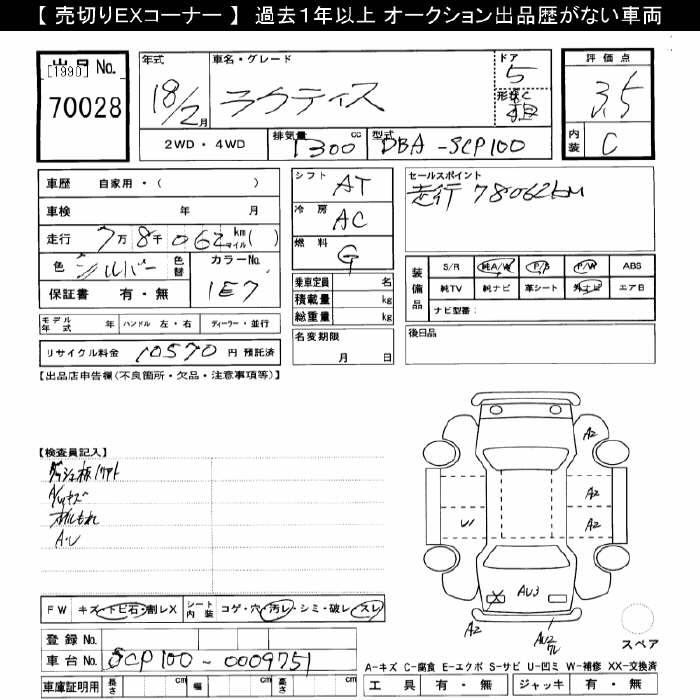 【 売切りEXコーナー 】 過去1年以上 オークション出品歴がない車両
出品 No.
[1990]
70028
年式
18/2月
車名・グレード
ラクティス
ドア
5
形状
評価点
3.5
内装
C
2WD・4WD
排気量
1300 cc
型式
DBA-SCP100
車歴 自家用・( )
車検 年 月
走行 7万8千062 km マイル( )
色 シルバー 色替
カラーNo.
1E7
保証書 有・無
シフト AT
冷房 AC
燃料 G
乗車定員 名
積載量 kg
総重量 kg
名変期限
月 日
セールスポイント
走行 78062km
装備品
S/R 純A/W P/S P/W ABS
純TV 純ナビ 革シート 外ナビ エアB
ナビ型番:
後日品
モデル年式 年 ハンドル 左・右 ディーラー・並行
リサイクル料金 10570 円 預託済
【出品店申告欄(不良箇所・欠品・注意事項等)】
【検査員記入】
A/Wキズ
オイルもれ
FW キズ・トビ石・割レX
シート内装 コゲ・穴・汚レ・シミ・破レ・スレ
登録 No.
車台 No. SCP100-0009751
車庫証明用 長さ cm 幅 cm 高さ cm
A2
A2
A2
U1
AU3
X
A2
AU2
スペア
A-キズ C-腐食 E-エクボ S-サビ U-凹ミ W-補修 XX-交換済
工具 有・無 ジャッキ 有・無